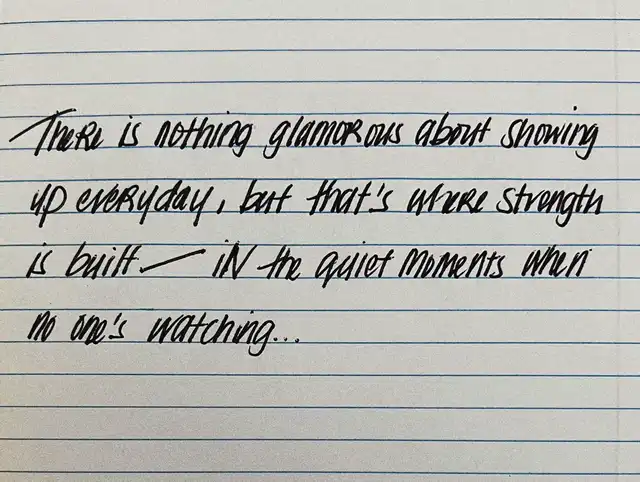 There is nothing glamorous about showing
up everyday, but that's where strength
is built — in the quiet moments when
no one's watching...